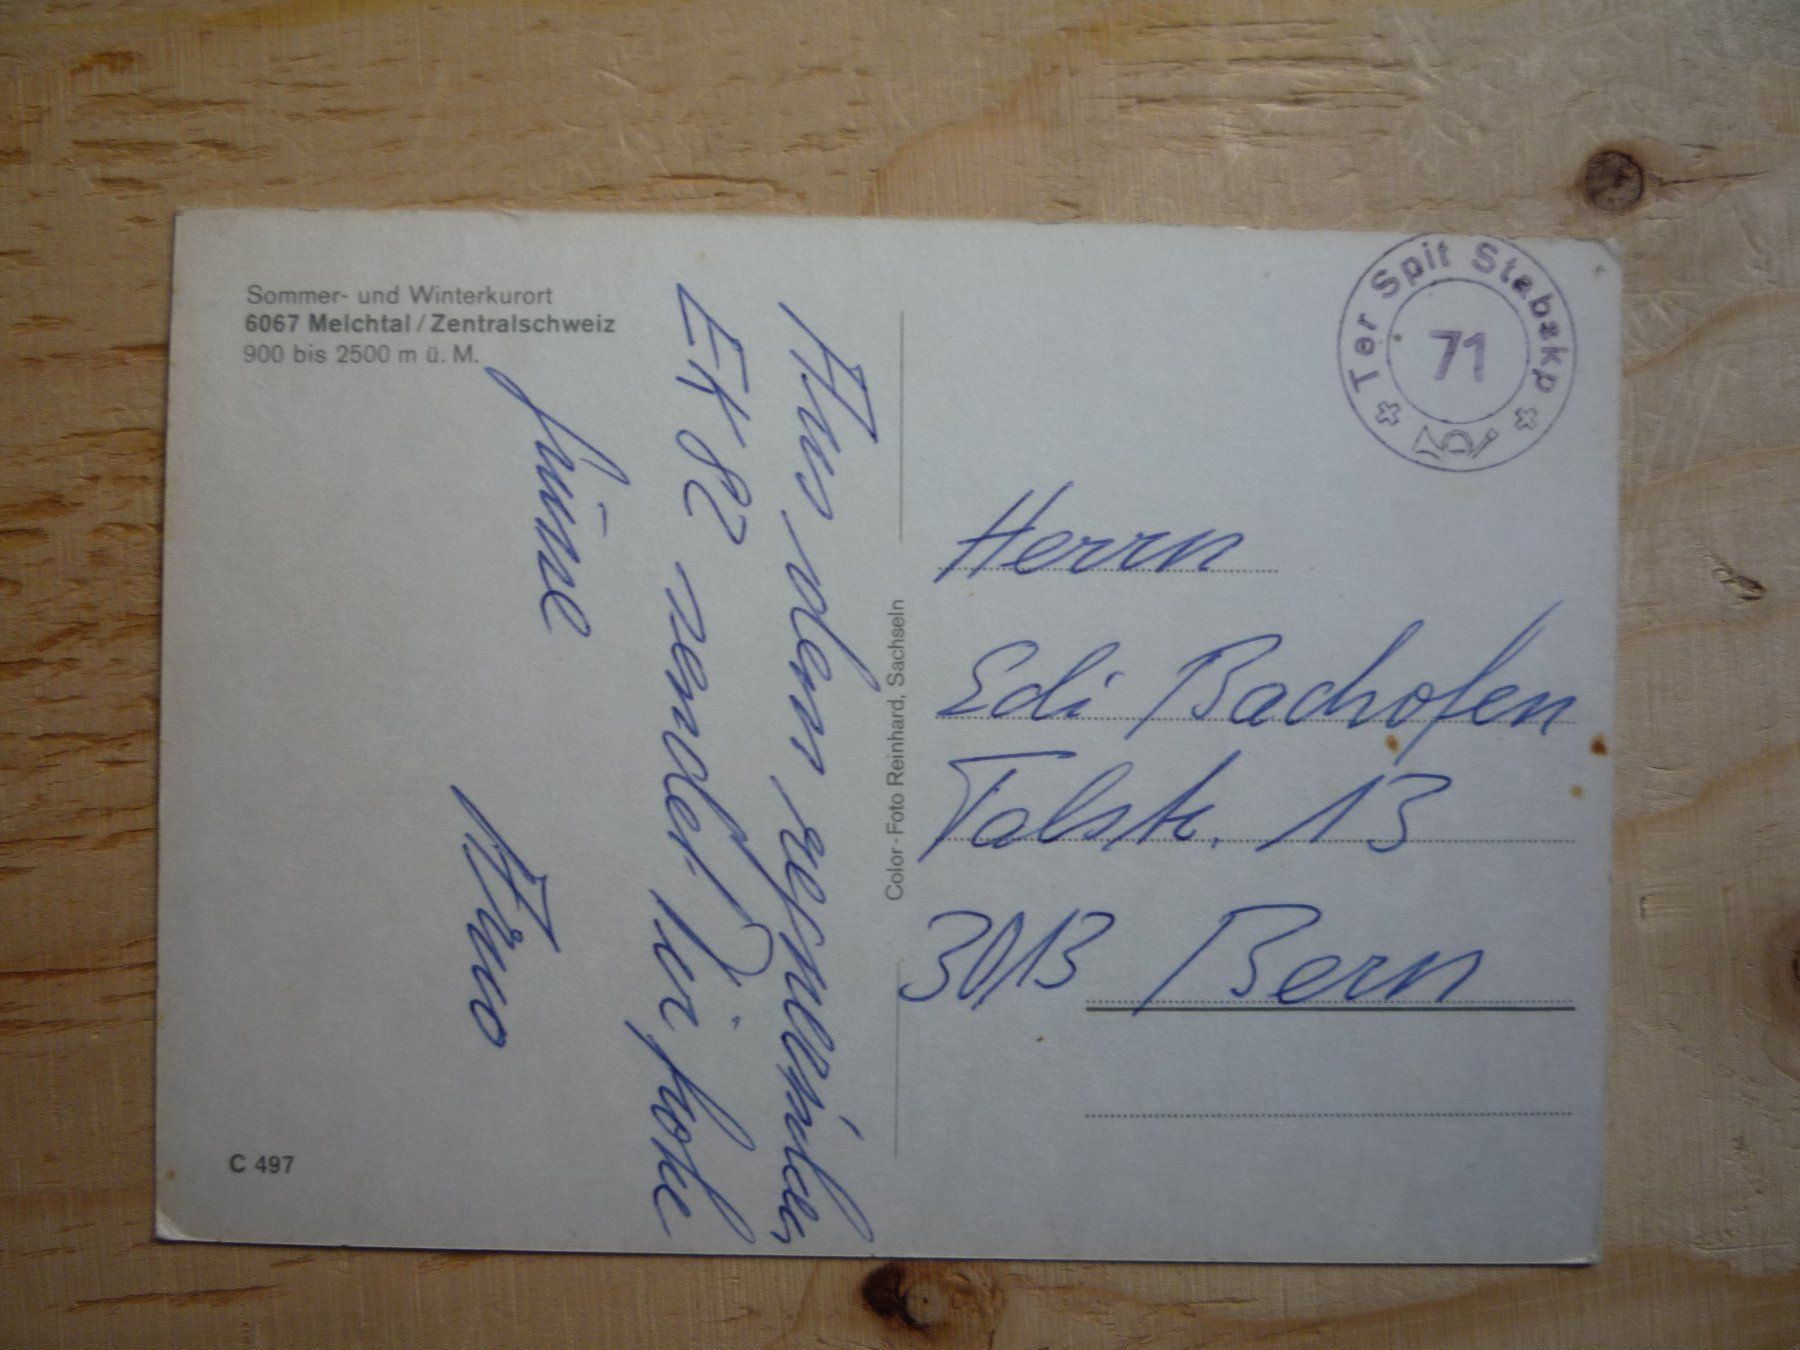 Sommer- und Winterkurort
6067 Melchtal/Zentralschweiz
900 bis 2500 m ü. M.
Aus dem
EK 82 sendet Dir frohe
Grüsse
Arno
C 497
Color-Foto Reinhard, Sachseln
Ter Spit Stabskp
71
Herrn
Edi Bachofen
Talstr. 13
3013 Bern